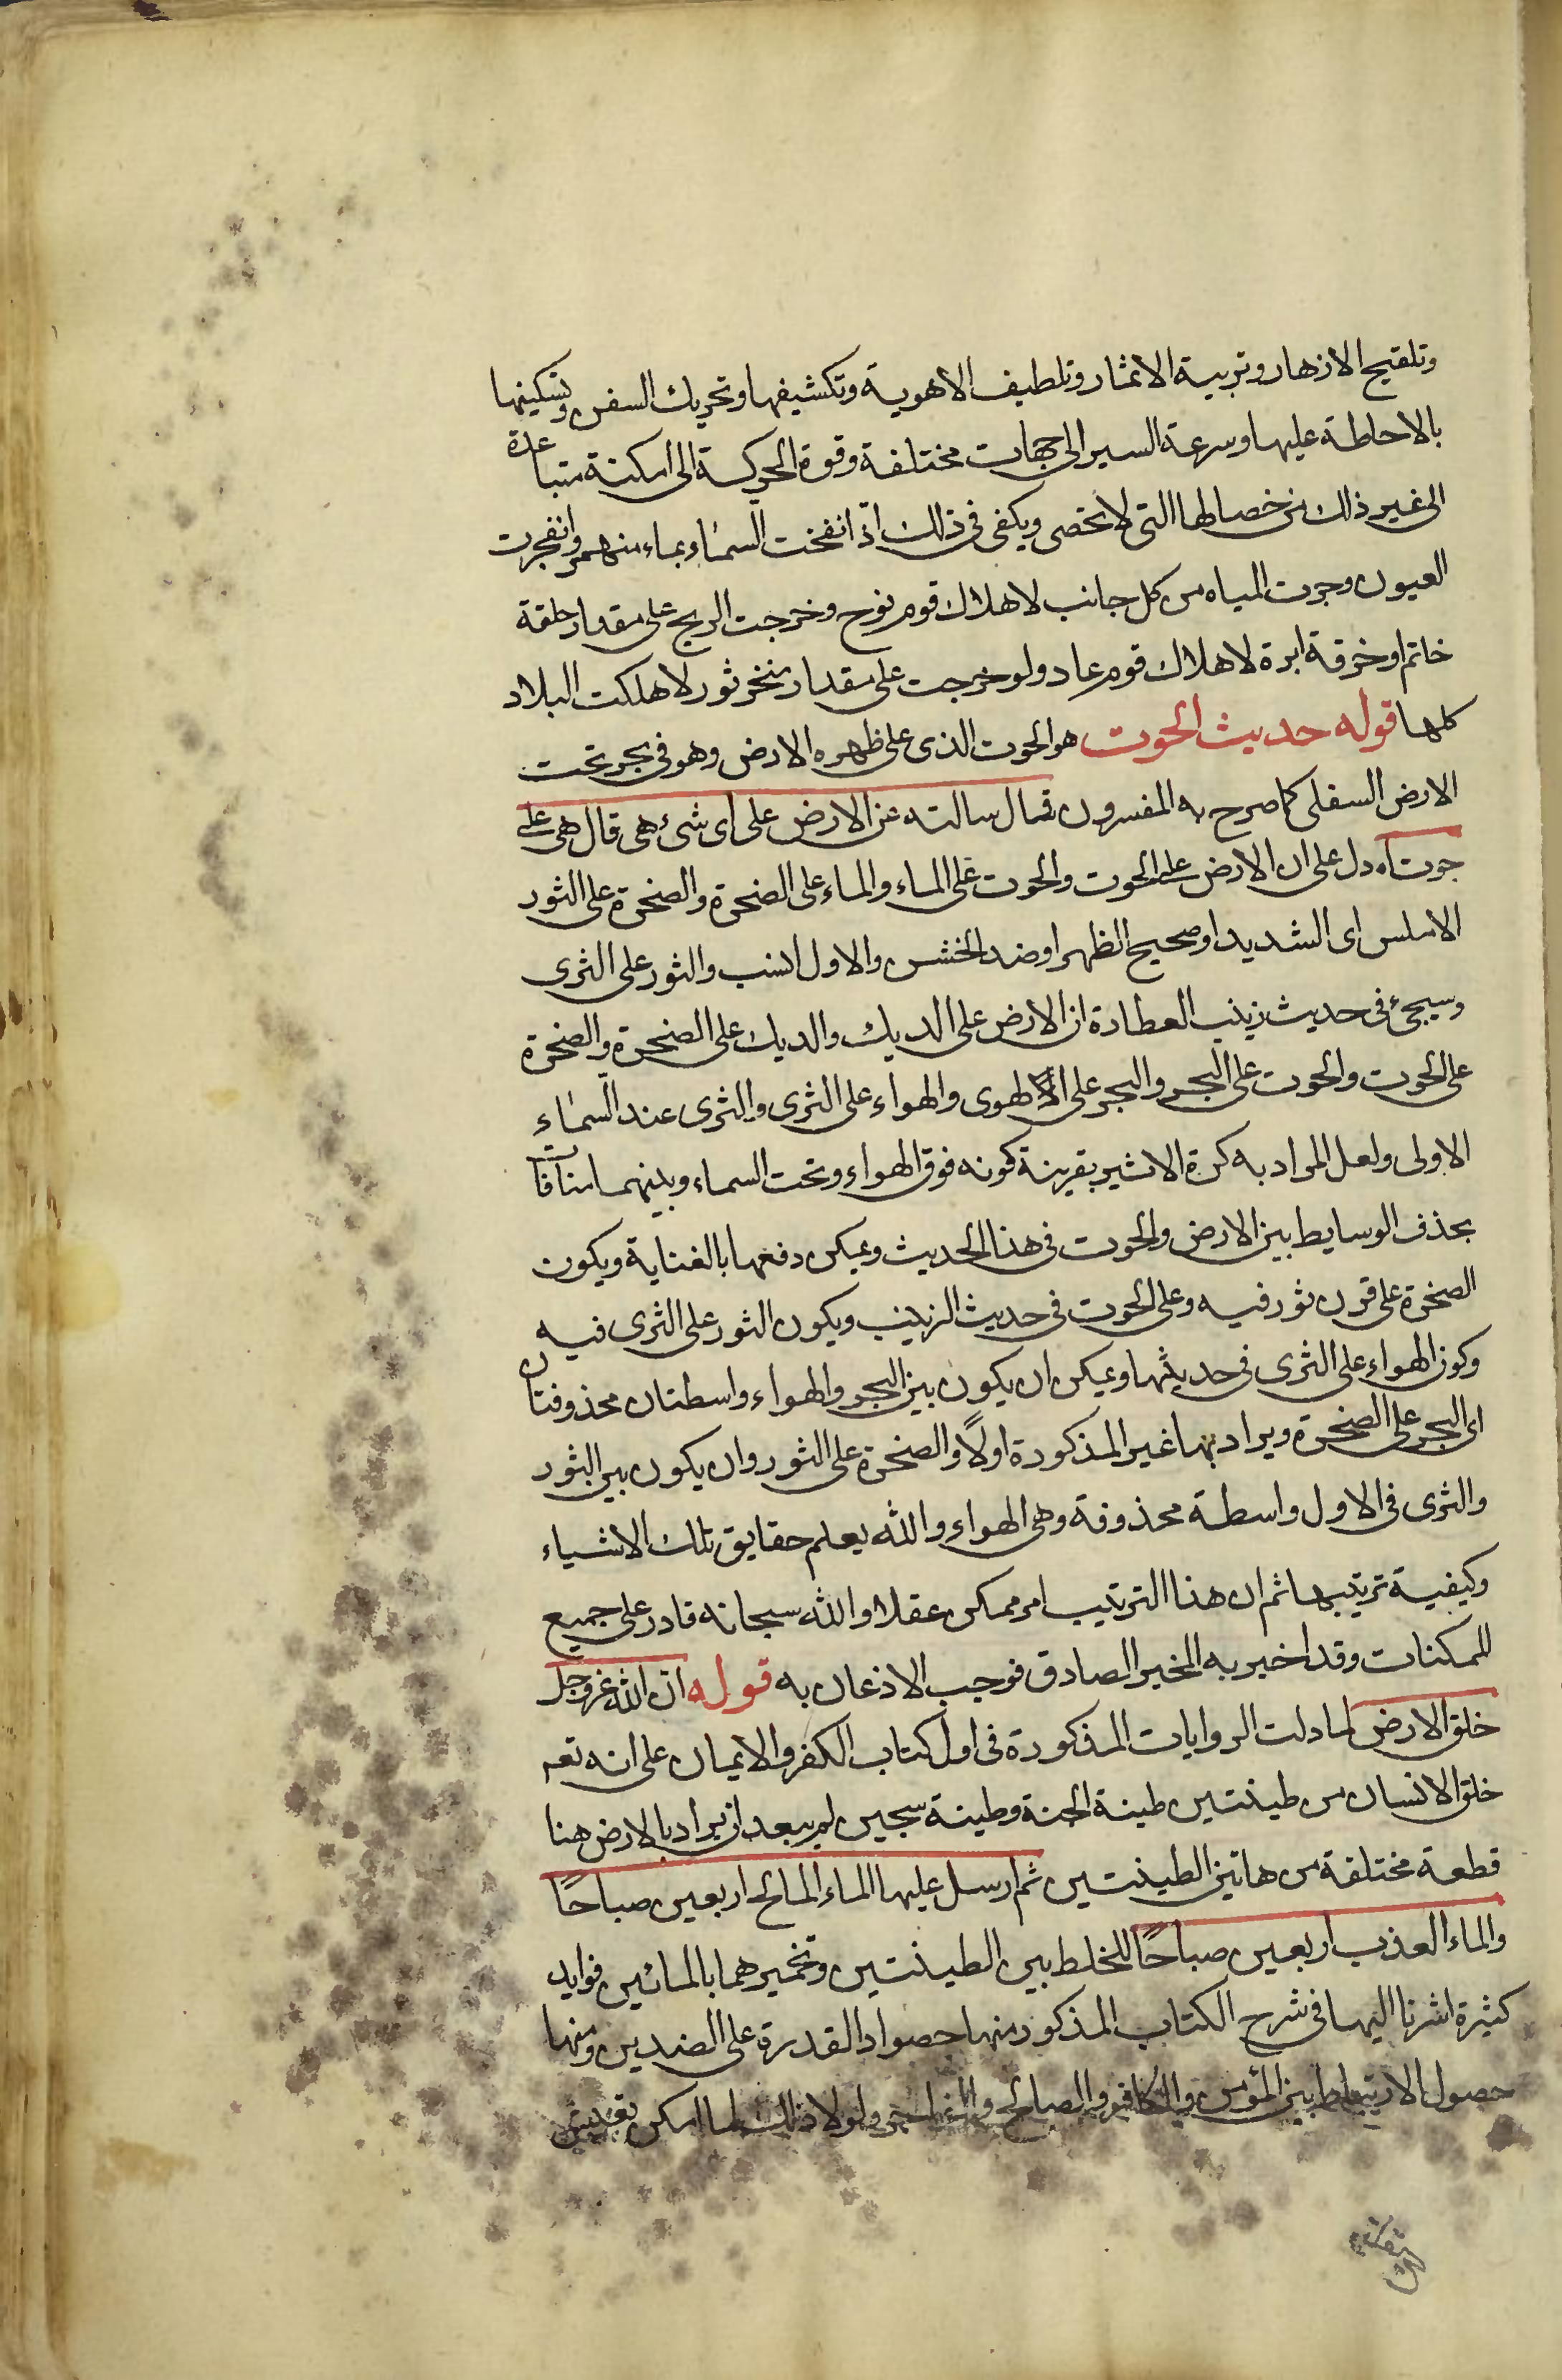 وتلقيح الازهار وتربية الاثمار وتلطيف الاهوية وتكشيفها وتحريك السفن وتسكينها
بالاحاطة عليها وسرعة السير الى جهات مختلفة وقوة الحركة الى امكنة متباعدة
الى غير ذلك من خصالها التى لا تحصى ويكفى فى ذلك اذ انفخت السماء بماء منهمر وانفجرت
العيون وجرت المياه من كل جانب لاهلاك قوم نوح وخرجت الريح على مقدار حلقة
خاتم او خرقة ابرة لاهلاك قوم عاد ولو خرجت على مقدار منخر ثور لاهلكت البلاد
كلها قوله حديث الحوت هو الحوت الذى على ظهره الارض وهو فى بحر تحت
الارض السفلى كما صرح به المفسرون قال سالته عن الارض على اى شىء هى قال هى على
حوت اه دل على ان الارض على الحوت والحوت على الماء والماء على الصخرة والصخرة على الثور
الاملس اى الشديد او صحيح الظهر او ضد الخشن والاول انسب والثور على الثرى
وسيجىء فى حديث زينب العطارة ان الارض على الديك والديك على الصخرة والصخرة
على الحوت والحوت على البحر والبحر على الهوى والهواء على الثرى والثرى عند السماء
الاولى ولعل المراد به كرة الاثير بقرينة كونه فوق الهواء وتحت السماء وبينهما منافاة
بحذف الوسايط بين الارض والحوت فى هذا الحديث ويمكن دفعها بالعناية ويكون
الصخرة على قرن ثور فيه وعلى الحوت فى حديث الزينب ويكون الثور على الثرى فيه
وكون الهواء على الثرى فى حديثها ويمكن ان يكون بين البحر والهواء واسطتان محذوفتان
اى البحر على الصخرة ويراد بها غير المذكورة اولاً والصخرة على الثور وان يكون بين الثور
والثرى فى الاول واسطة محذوفة وهى الهواء والله يعلم حقايق تلك الاشياء
وكيفية ترتيبها ثم ان هذا الترتيب امر ممكن عقلا والله سبحانه قادر على جميع
الممكنات وقد اخبر به المخبر الصادق فوجب الاذعان به قوله ان الله عز وجل
خلق الارض لما دلت الروايات المذكورة فى اول كتاب الكفر والايمان على انه تعه
خلق الانسان من طينتين طينة الجنة وطينة سجين لم يبعد ان يراد بالارض هنا
قطعة مختلقة من هاتين الطينتين ثم ارسل عليها الماء المالح اربعين صباحًا
والماء العذب اربعين صباحًا للخلط بين الطينتين وتخميرهما بالمائين فوايد
كثيرة اشرنا اليها فى شرح الكتاب المذكور منها حصول القدرة على الضدين ومنها
حصول الارتباط بين المؤمن والكافر والصالح والفاجر ولولا ذلك لما امكن تعيش